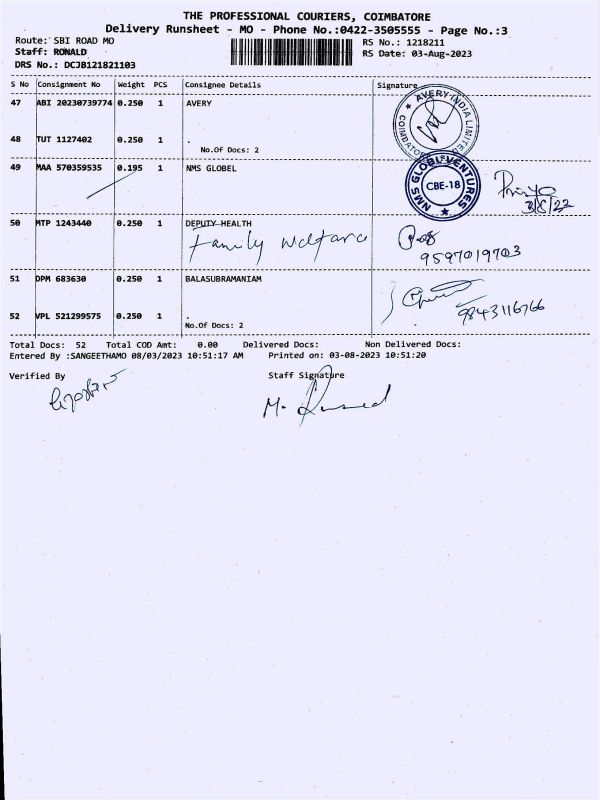 THE PROFESSIONAL COURIERS, COIMBATORE
Delivery Runsheet - MO - Phone No.:0422-3505555 - Page No.:3
Route: SBI ROAD MO
RS No.: 1218211
Staff: RONALD
RS Date: 03-Aug-2023
DRS No.: DCJB121821103
S No Consignment No Weight PCS Consignee Details Signature
47 ABI 20230739774 0.250 1 AVERY
AVERY INDIA LIMITED
COIMBATORE
48 TUT 1127402 0.250 1 .
No.Of Docs: 2
49 MAA 570359535 0.195 1 NMS GLOBEL
NMS GLOBL VENTURES
CBE-18
Priya
3/8/23
50 MTP 1243440 0.250 1 DEPUTY HEALTH
Family Welfare
9597019703
51 DPM 683630 0.250 1 BALASUBRAMANIAM
9843116766
52 VPL 521299575 0.250 1 .
No.Of Docs: 2
Total Docs: 52 Total COD Amt: 0.00 Delivered Docs: Non Delivered Docs:
Entered By :SANGEETHAMO 08/03/2023 10:51:17 AM Printed on: 03-08-2023 10:51:20
Verified By Staff Signature